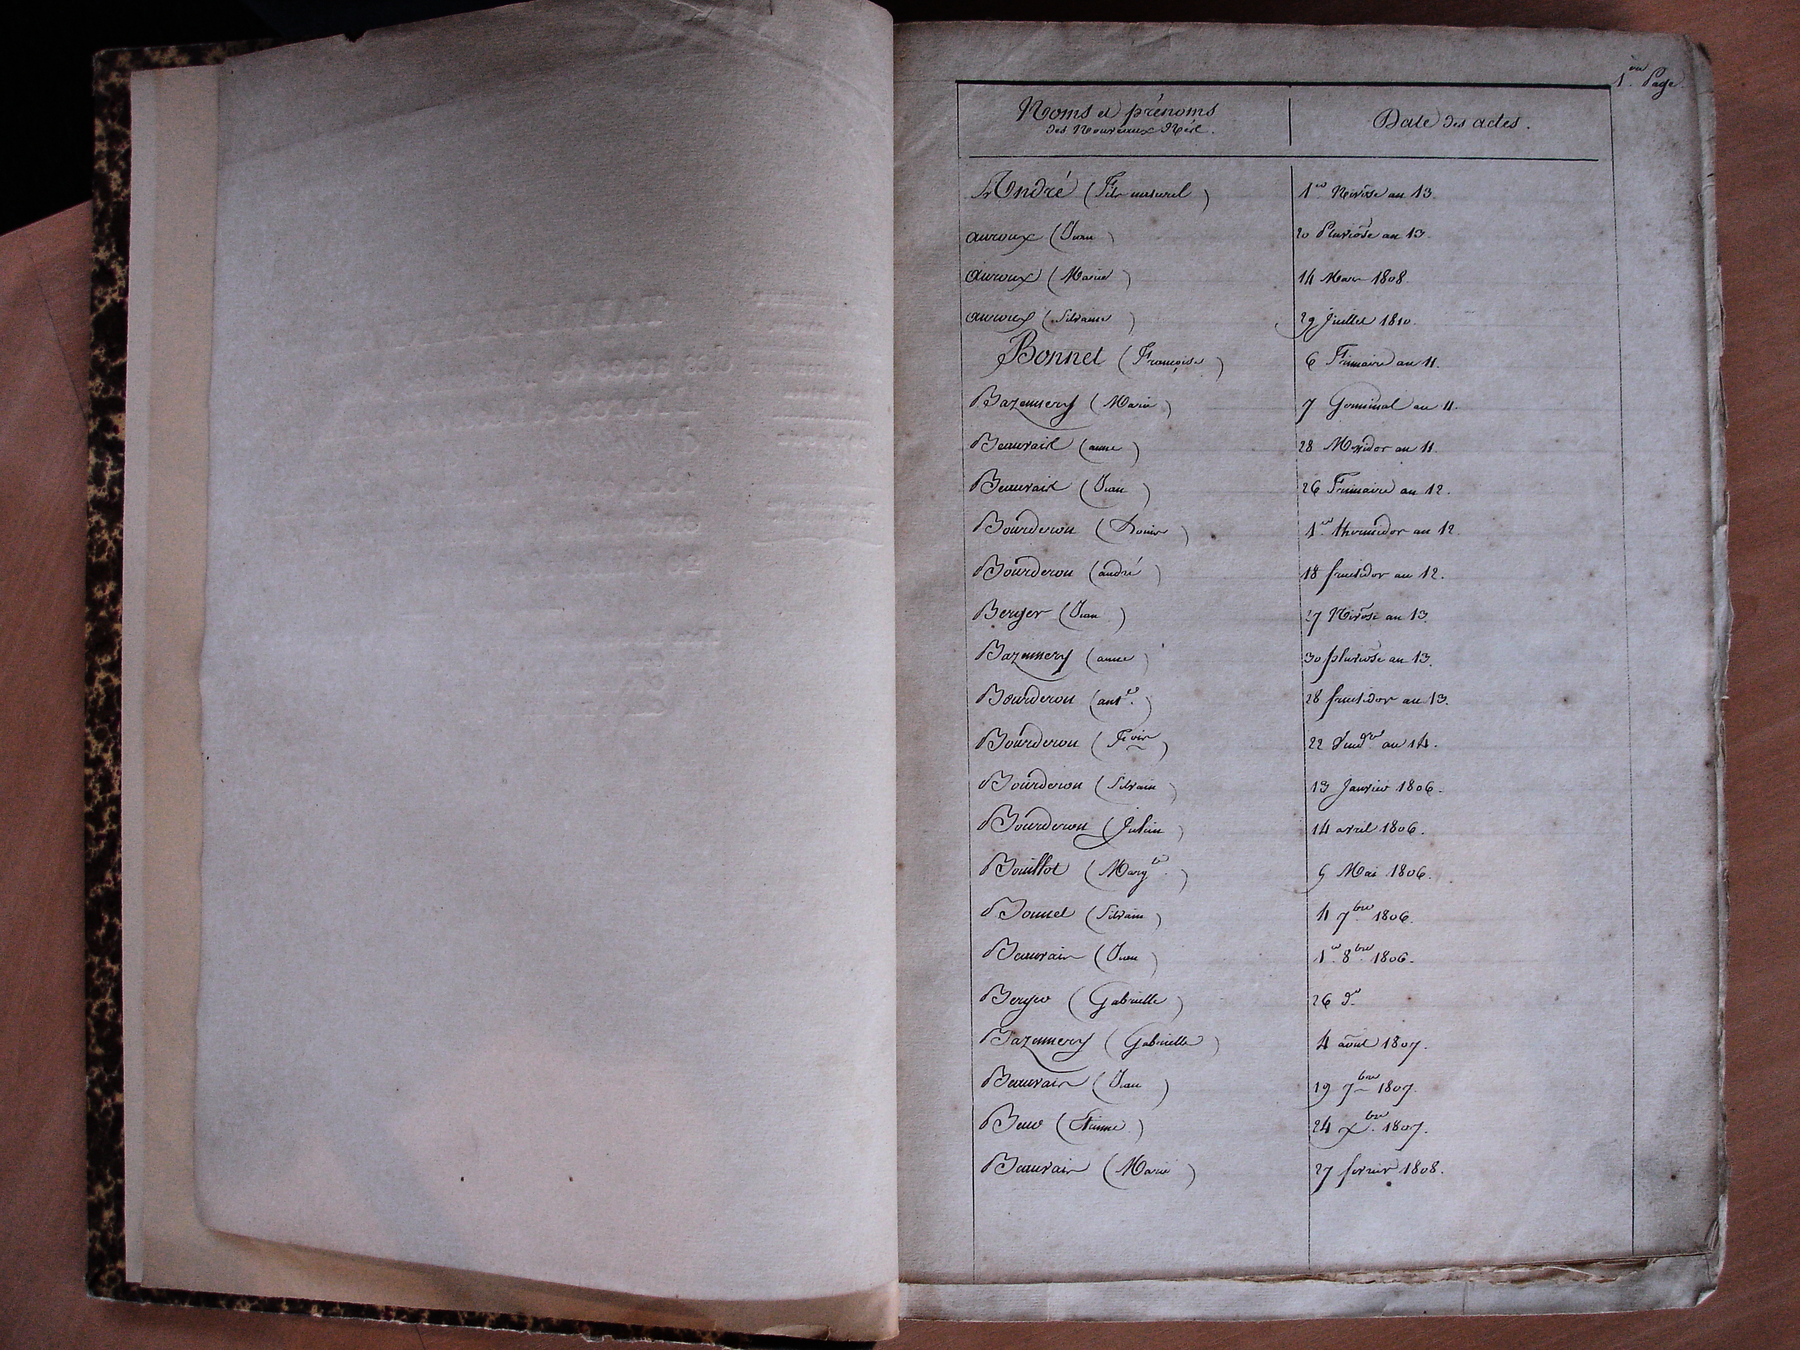 1ere Page.
Noms et prénoms
des Nouveaux Nés.
Date des actes.
André (Fils naturel)
1er Nivôse an 13.
auroux (Jean)
20 Pluviôse an 13.
auroux (Marie)
14 Mars 1808.
auroux (Silvaine)
29 Juillet 1810.
Bonnet (Françoise)
6 Frimaire an 11.
Bazennery (Marie)
7 Germinal an 11.
Beauvais (anne)
28 Messidor an 11.
Beauvais (Jean)
26 Frimaire an 12.
Bourderon (Louis)
1er thermidor an 12.
Bourderon (andré)
18 fructidor an 12.
Berger (Jean)
27 Nivôse an 13.
Bazennery (anne)
30 pluviôse an 13.
Bourderon (antne.)
28 fructidor an 13.
Bourderon
22 Vendre an 14.
Bourderon (Silvain)
13 Janvier 1806.
Bourderon (Julien)
14 avril 1806.
Bouillot (Margte.)
Mai 1806.
Bonnet (Silvain)
4 7bre 1806.
Beauvais (Jean)
1er 8bre 1806.
Berger (Gabrielle)
26 do
Bazennery (Gabrielle)
4 août 1807.
Beauvais (Jean)
19 7bre 1807.
(Etienne)
24 xbre 1807.
Beauvais (Marie)
27 fevrier 1808.